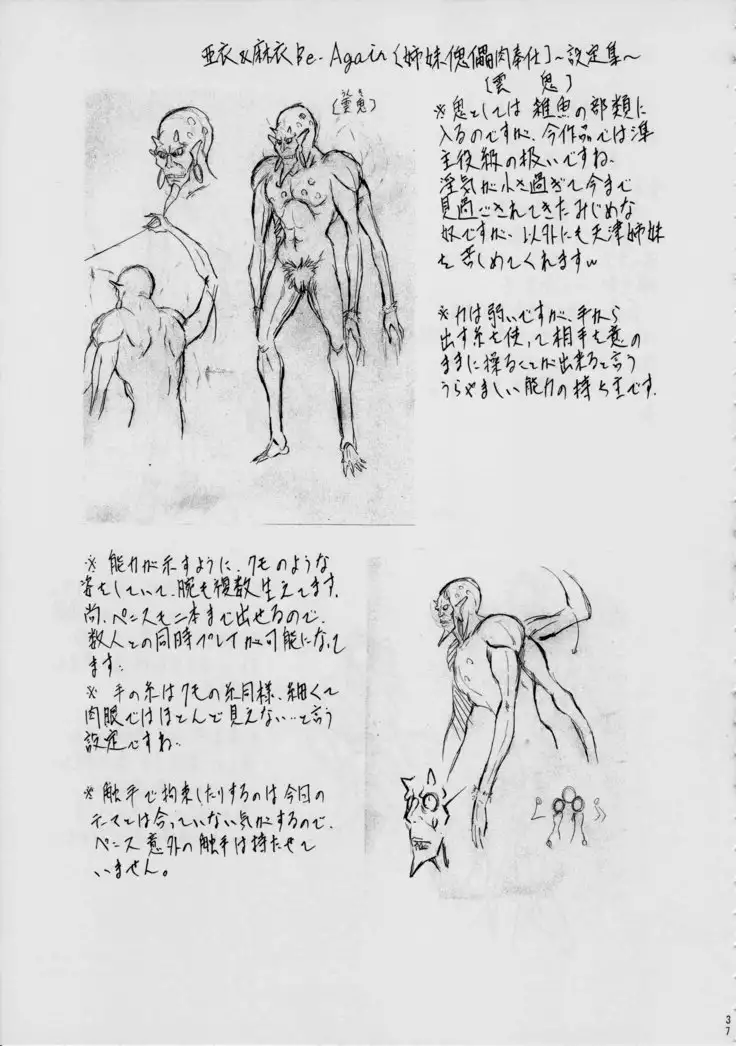 亜衣&麻衣Be-Again〔姉妹傀儡肉奉仕〕~設定集~
(雲 鬼)
(雲鬼)
※鬼としては雑魚の部類に
入るのですが、今作品では準
主役級の扱いですね、
淫気が小さ過ぎて今まで
見過ごされてきたみじめな
奴ですが、以外にも天津姉妹
を苦しめてくれますw
※力は弱いですが、手から
出す糸を使って相手を意の
ままに操ることが出来ると言う
うらやましい能力の持ち主です.
※ 能力が示すように、クモのような
姿をしていて、腕も複数生えてます.
尚、ペニスも二本まで出せるので、
数人との同時プレイが可能になって
ます.
※ 手の糸はクモの糸同様、細くて
肉眼ではほとんど見えない…と言う
設定ですね.
※ 触手で拘束したりするのは今回の
テーマとは合っていない気がするので、
ペニス意外の触手は持たせて
いません。
37